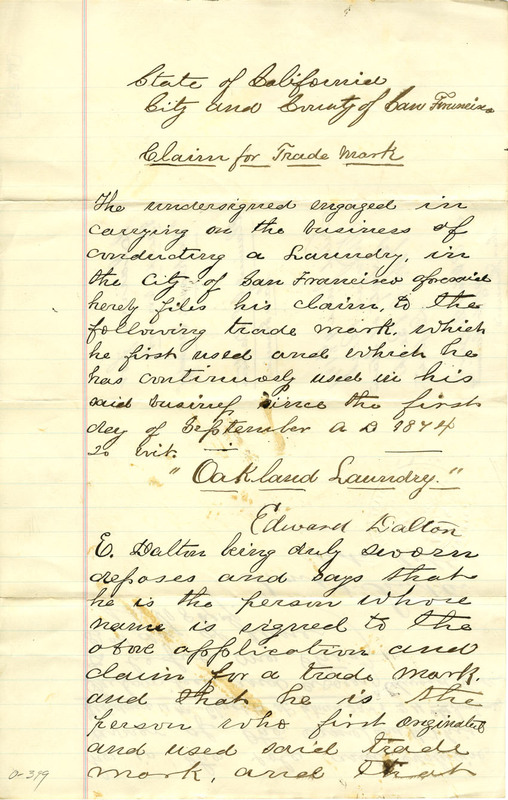 State of California
City and County of San Francisco
Claim for Trade Mark
The undersigned engaged in
carrying on the business of
conducting a Laundry, in
the City of San Francisco aforesaid
hereby files his claim, to the
following trade mark, which
he first used and which he
has continuously used in his
said business since the first
day of September A D 1874
to wit.
"Oakland Laundry."
Edward Dalton
E. Dalton being duly sworn
deposes and says that
he is the person whose
name is signed to the
above application and
claim for a trade mark.
and that he is the
person who first originated
and used said trade
mark, and that
0-379